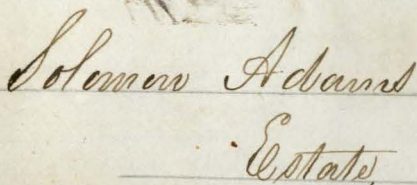 Solomon Adams
Estate